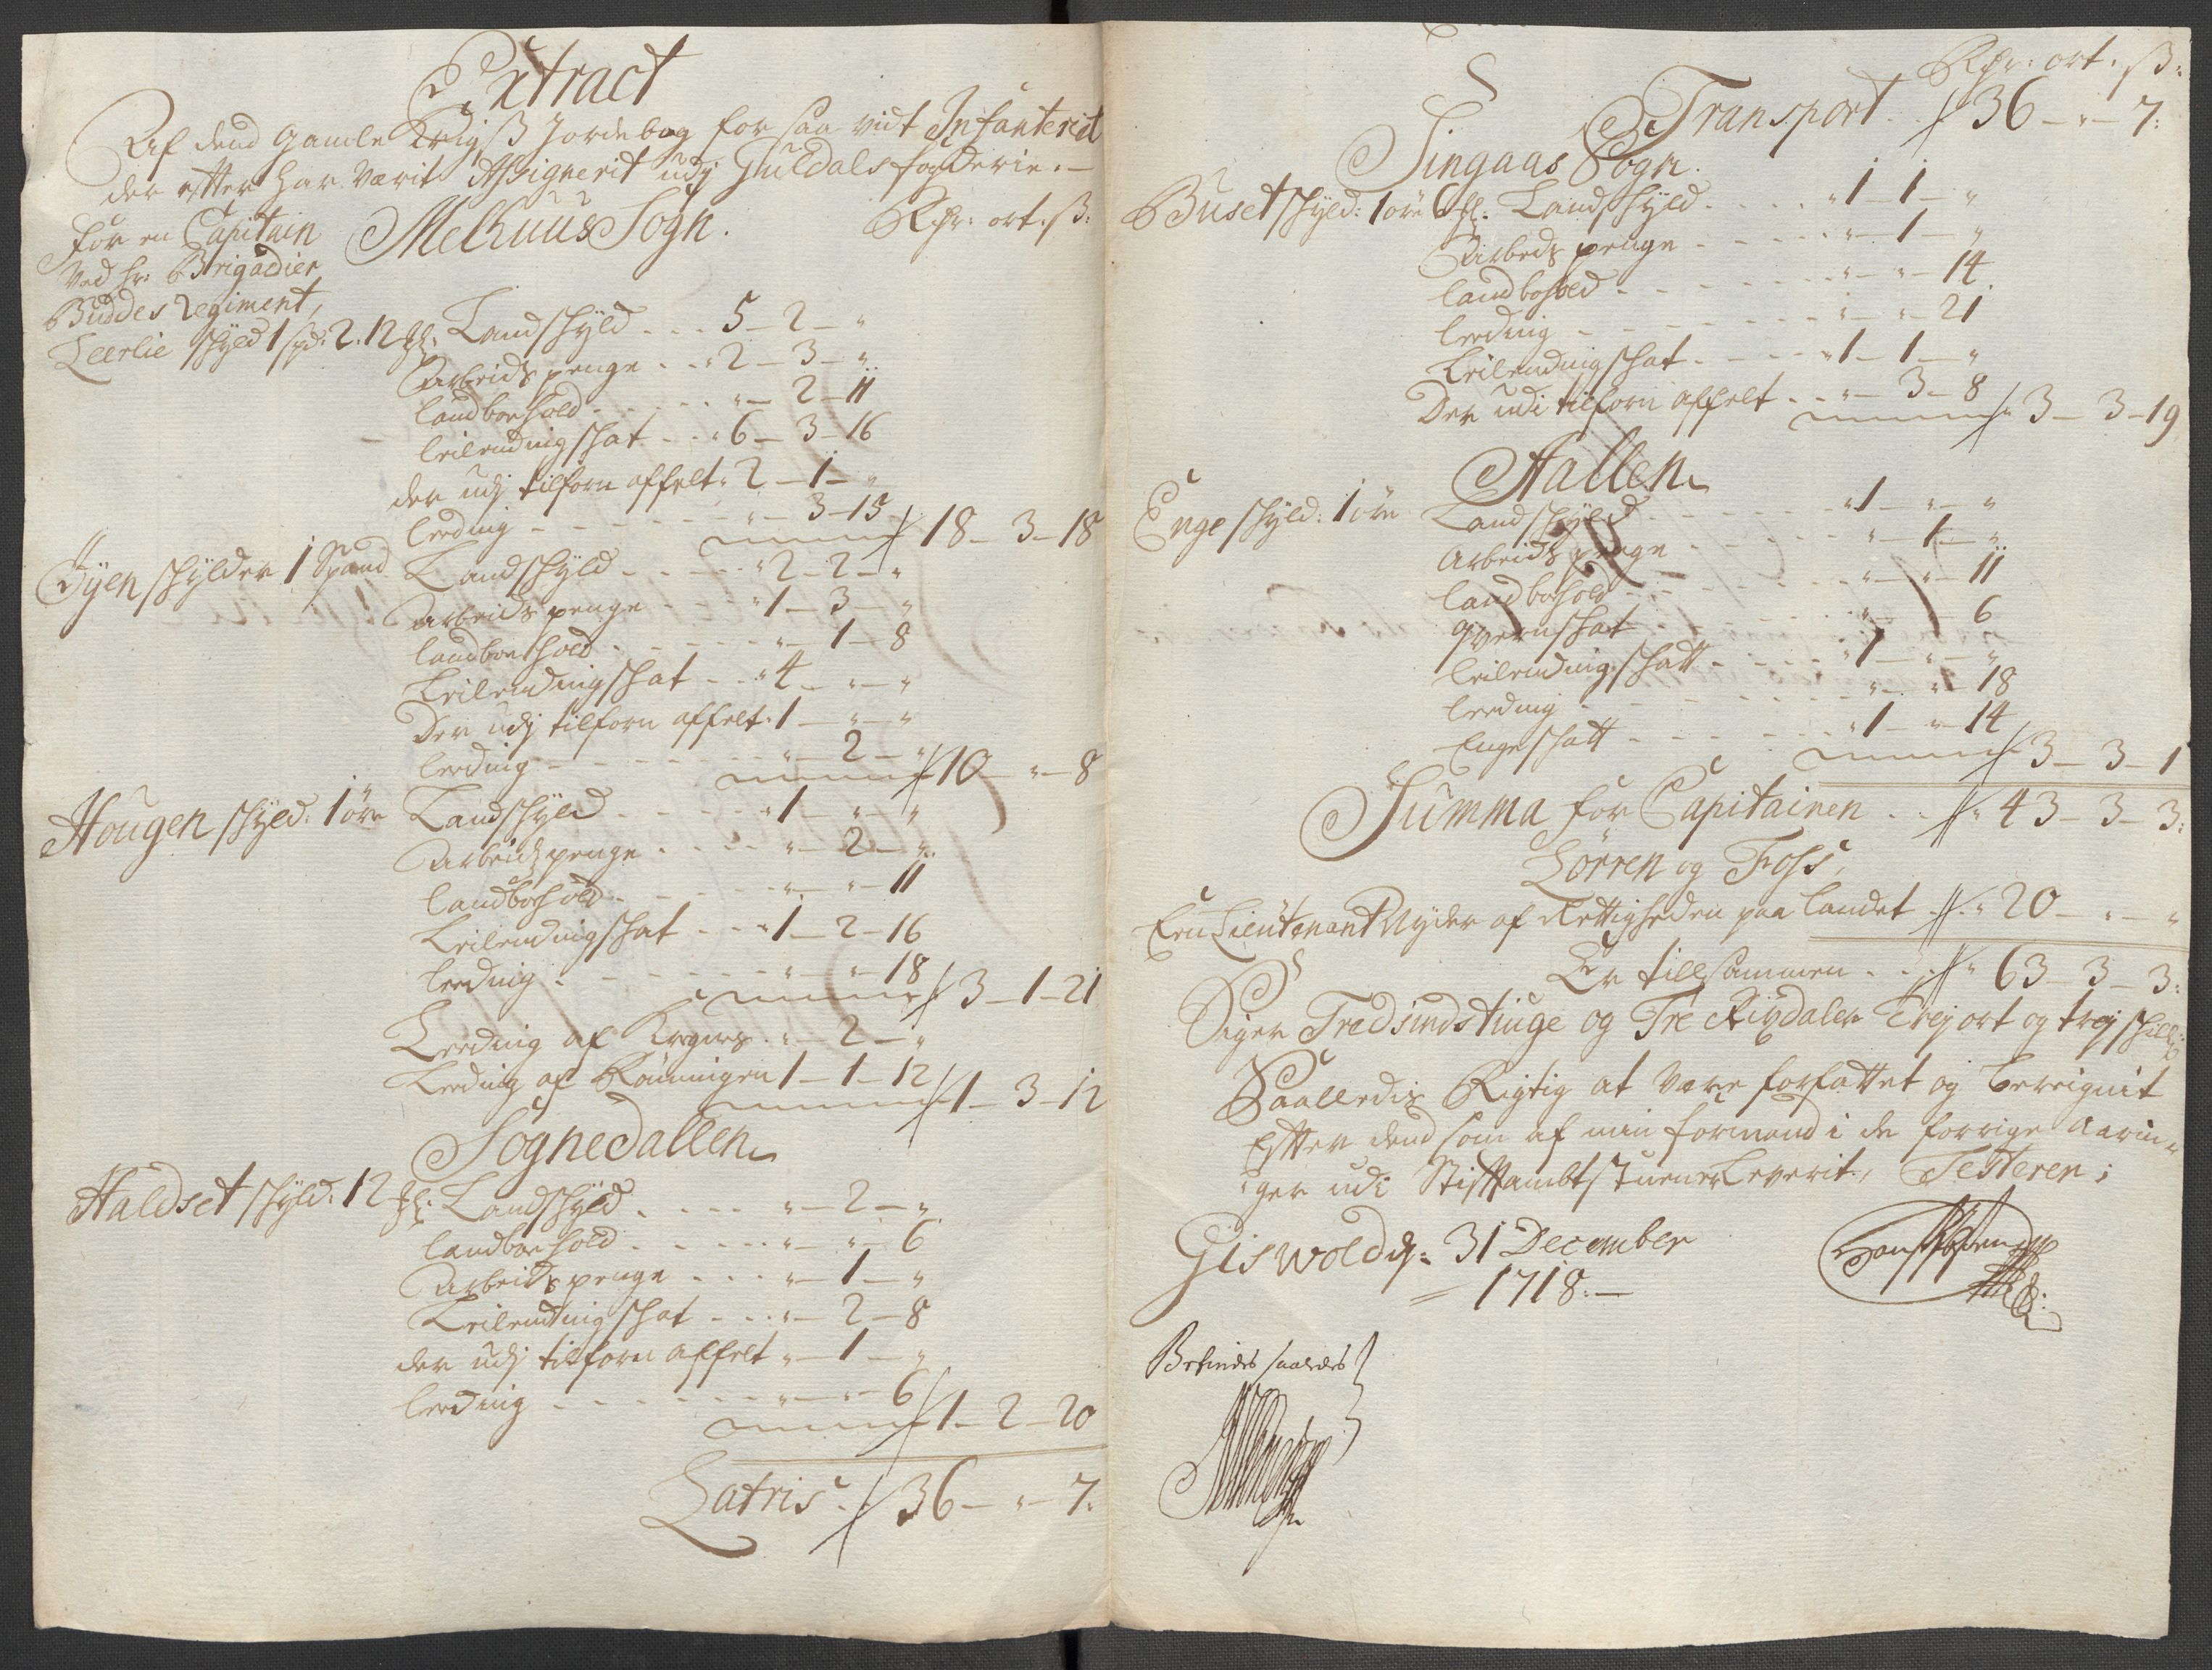 Extract
Af dend gamle Krigs Jordebog for saa vidt Infanteriet
der efter har værit Assignerit udj Guldals fogderie.
for en Capitain
Ved hr: Brigadier
Buddes Regiment,
Melhuus Sogn. Rdr: ort. ß:
Leerlie schyld 1 spd: 2. 12 Landschyld 5 - 2 - "
Arbeids penge 2 - 3 - "
landboehold " - 2 - 11
leilendingschat 6 - 3 - 16
der udj tilforn affelt 2 - 1 - "
leeding " - 3 - 15 18 - 3 - 18
Øyen schylder 1 Spand Landschyld 2 - 2 - "
Arbeids penge 1 - 3 - "
landboehold " - 1 - 8
Leilendingschat 4 - " - "
Der udj tilforn affelt 1 - " - "
leeding " - 2 - " 10 - " - 8
Hougen schyld: 1 øre Landschyld 1 - " - "
Arbeids penge " - 2 - "
landbohold " - " - 11
Leilendingschat 1 - 2 - 16
leeding " - " - 18 3 - 1 - 21
Leeding af " - 2 - "
Leeding af Rønningen 1 - 1 - 12 1 - 3 - 12
Sognedallen
Haldset schyld: 12 Landschyld " - 2 - "
landboehold " - " - 6
Arbeids penge " - 1 - "
Leilendingschat " - 2 - 8
der udj tilforn affelt " - 1 - "
leeding " - " - 6 1 - 2 - 20
Latris 36 - " - 7:
Rdr: ort. ß:
Transport 36 - " - 7:
Singaas Sogn.
Buset schyld: 1 øre 6 Landschyld 1 - 1 - "
Arbeds penge " - 1 - "
landbohold " - " - 14
leeding " - " - 21
Leilendingschat 1 - 1 - "
Der udi tilforn affelt " - 3 - 8 3 - 3 - 19
Aallen
Enge schyld: 1 øre Landschyld 1 - " - "
Arbeids penge " - 1 - "
landbohold " - " - 11
qvernschat " - " - 6
leilendingschatt 1 - " - "
leeding " - " - 18
Engeschatt 1 - " - 14 3 - 3 - 1
Summa for Capitainen 43 - 3 - 3:
Lørren og Foss,
Een Lieutenant Nyder af Rettigheden paa landet 20 - " - "
Er tillsammen 63 - 3 - 3:
Siger Tredsindstiuge og Tre Rixdaler Trej ort og trej schill:
Saaledis Rigtig at være forfattet og bereignit
Efter dend som af min formand i de forrige Aarin-
ger udi Stiftambtstuen er Leverit, Testeren;
Giswold d: 31 December
1718:
Befindes saaledes